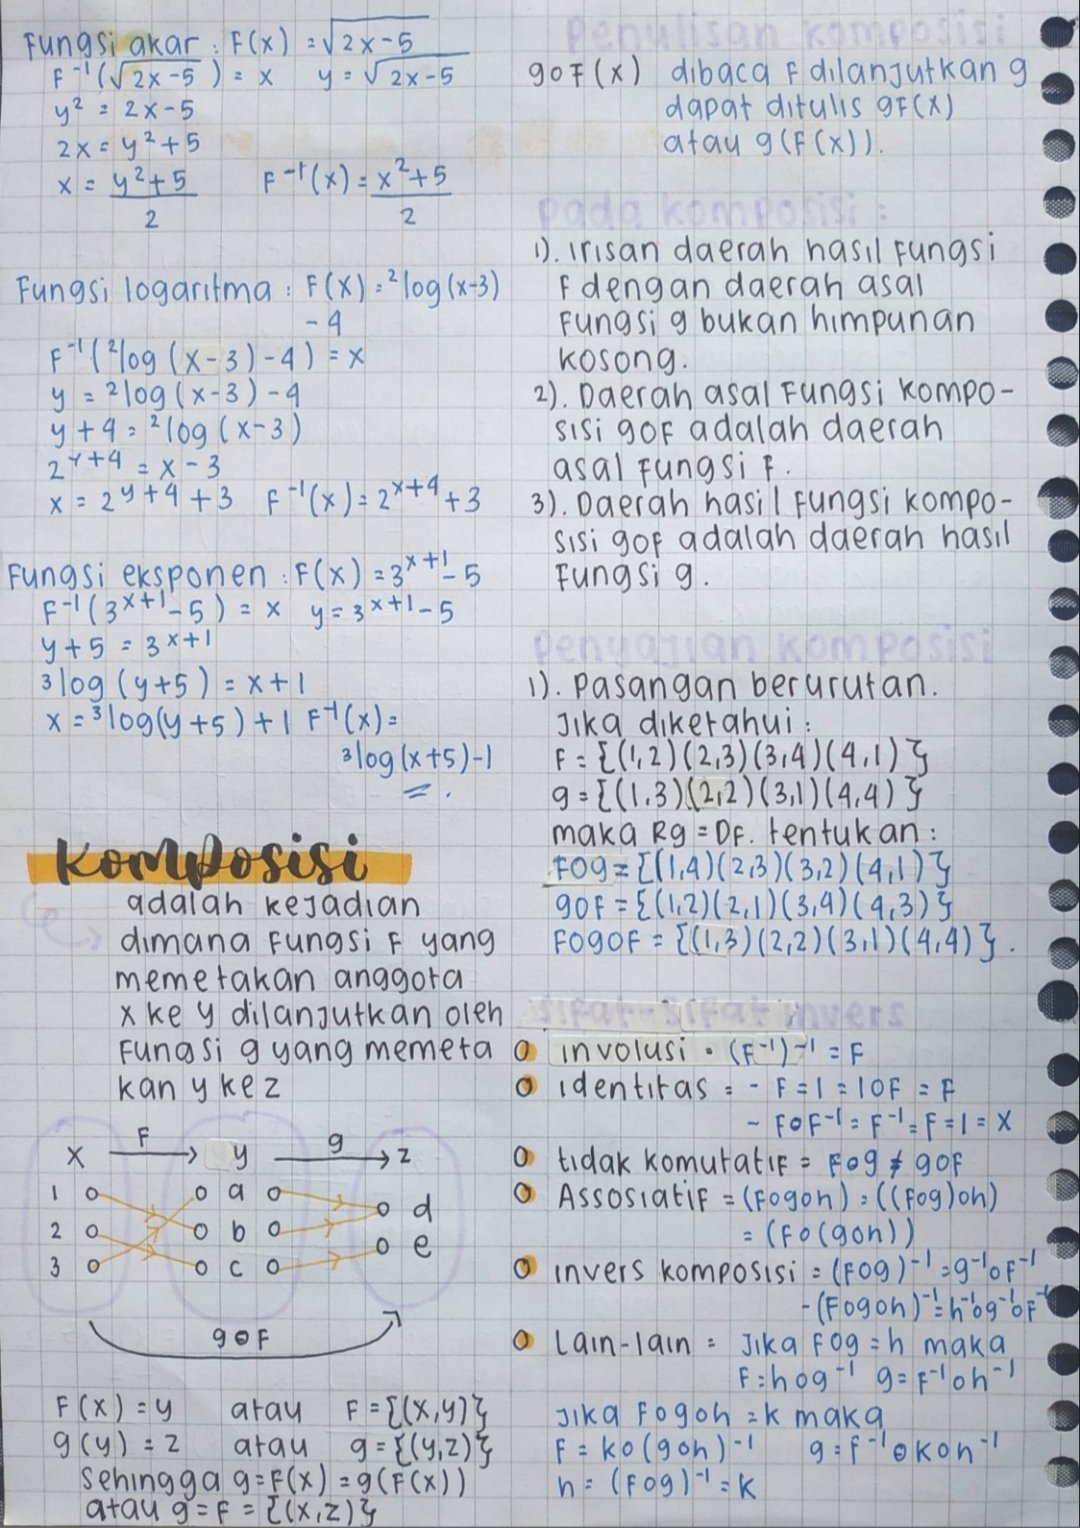 Fungsi akar : F(x) = √2x-5
F⁻¹(√2x-5) = x   y = √2x-5
y² = 2x-5
2x = y²+5
x = y²+5 / 2   F⁻¹(x) = x²+5 / 2
Fungsi logaritma : F(x) = ²log(x-3)
-4
F⁻¹(²log(x-3)-4) = x
y = ²log(x-3)-4
y+4 = ²log(x-3)
2^(y+4) = x-3
x = 2^(y+4) +3   F⁻¹(x) = 2^(x+4) +3
Fungsi eksponen : F(x) = 3^(x+1) -5
F⁻¹(3^(x+1) -5) = x   y = 3^(x+1) -5
y+5 = 3^(x+1)
³log(y+5) = x+1
x = ³log(y+5)+1   F⁻¹(x) =
³log(x+5)-1
Komposisi
adalah kejadian
dimana fungsi F yang
memetakan anggota
x ke y dilanjutkan oleh
fungsi g yang memeta
kan y ke z
x F y g z
1 a d
2 b e
3 c
goF
F(x) = y   atau   F = {(x,y)}
g(y) = z   atau   g = {(y,z)}
sehingga g=F(x) = g(F(x))
atau g=F = {(x,z)}
penulisan komposisi
goF(x) dibaca F dilanjutkan g
dapat ditulis gF(x)
atau g(F(x)).
pada komposisi :
1). irisan daerah hasil fungsi
F dengan daerah asal
fungsi g bukan himpunan
kosong.
2). Daerah asal fungsi kompo-
sisi goF adalah daerah
asal fungsi F.
3). Daerah hasil fungsi kompo-
sisi goF adalah daerah hasil
fungsi g.
penyajian komposisi
1). Pasangan berurutan.
Jika diketahui :
F = {(1,2)(2,3)(3,4)(4,1)}
g = {(1,3)(2,2)(3,1)(4,4)}
maka Rg = DF. tentukan :
Fog = {(1,4)(2,3)(3,2)(4,1)}
goF = {(1,2)(2,1)(3,4)(4,3)}
FogoF = {(1,3)(2,2)(3,1)(4,4)}.
sifat-sifat invers
involusi • (F⁻¹)⁻¹ = F
identitas = - F=I = IoF = F
- FoF⁻¹ = F⁻¹=F=I = x
tidak komutatif = Fog ≠ goF
Assosiatif = (Fogoh) = ((Fog)oh)
= (Fo(goh))
invers komposisi = (Fog)⁻¹ = g⁻¹oF⁻¹
- (Fogoh)⁻¹ = h⁻¹og⁻¹oF⁻¹
Lain-lain = Jika Fog = h maka
F = hog⁻¹   g = F⁻¹oh⁻¹
Jika Fogoh = k maka
F = ko(goh)⁻¹   g = F⁻¹okoh⁻¹
h = (Fog)⁻¹ = k